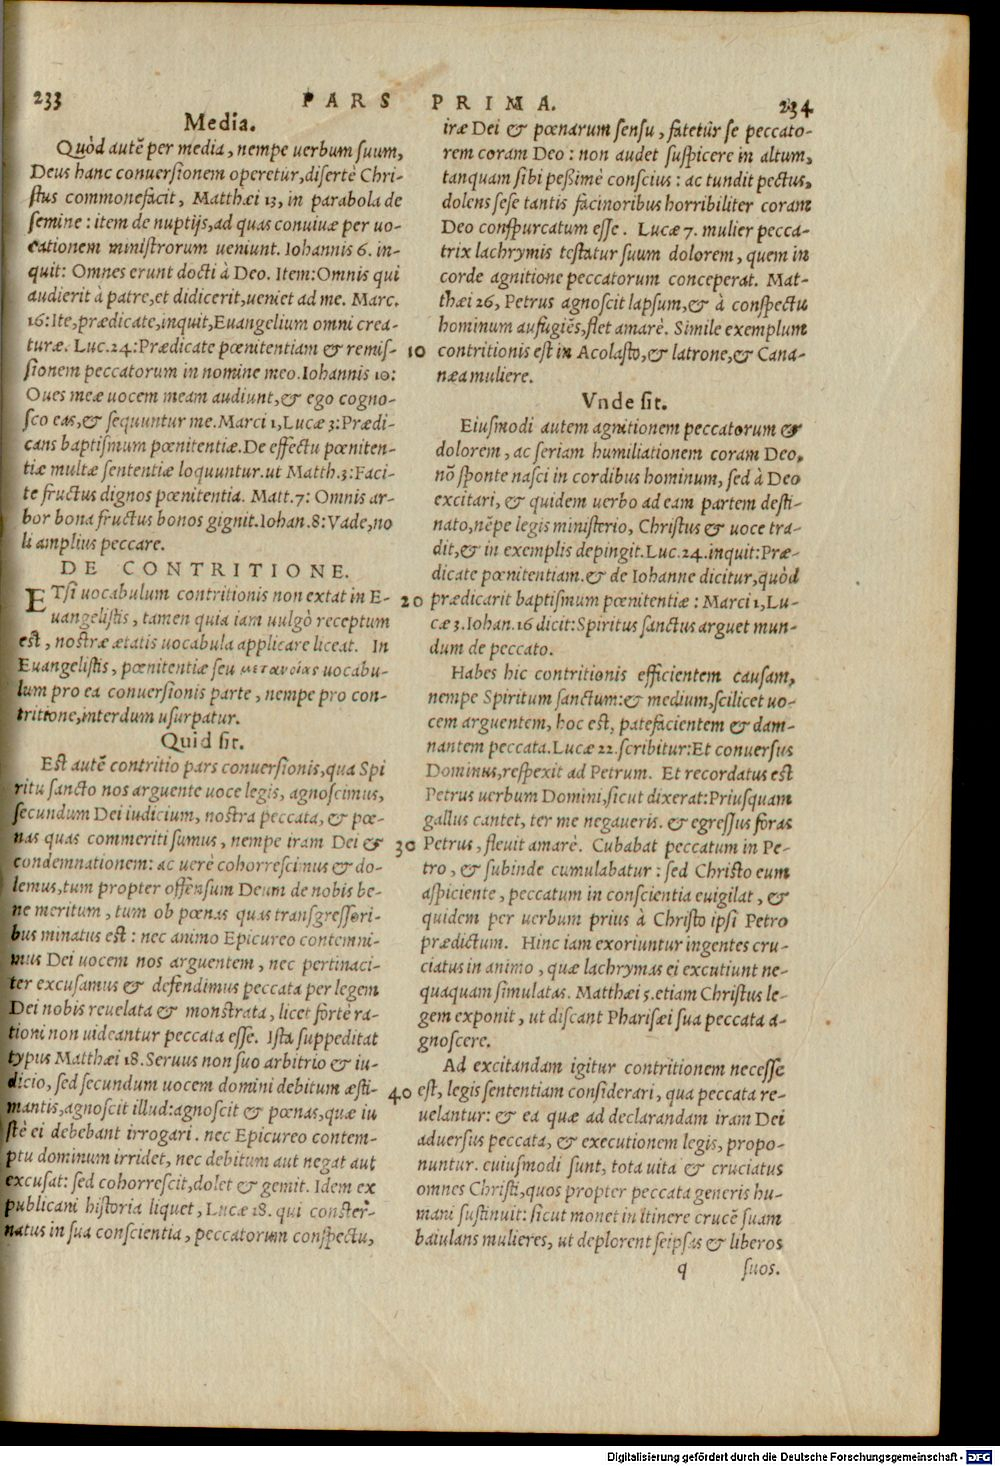 233 PARS PRIMA. 234
Media.
Quòd autẽ per media, nempe uerbum suum,
Deus hanc conuersionem operetur, disertè Chri-
stus commonefacit, Matthæi 13, in parabola de
semine: item de nuptijs, ad quas conuiuæ per uo-
cationem ministrorum ueniunt. Iohannis 6. in-
quit: Omnes erunt docti à Deo. Item: Omnis qui
audierit à patre, et didicerit, ueniet ad me. Marc.
16: Ite, prædicate, inquit, Euangelium omni crea-
turæ. Luc. 24: Prædicate pœnitentiam & remis-
sionem peccatorum in nomine meo. Iohannis 10:
Oues meæ uocem meam audiunt, & ego cogno-
sco eas, & sequuntur me. Marci 1, Lucæ 3: Prædi-
cans baptismum pœnitentiæ. De effectu pœniten-
tiæ multæ sententiæ loquuntur. ut Matth. 3: Faci-
te fructus dignos pœnitentia. Matt. 7: Omnis ar-
bor bona fructus bonos gignit. Iohan. 8: Vade, no
li amplius peccare.
DE CONTRITIONE.
ETsi uocabulum contritionis non extat in E-
uangelistis, tamen quia iam uulgò receptum
est, nostræ ætatis uocabula applicare liceat. In
Euangelistis, pœnitentiæ seu μετανοίας uocabu-
lum pro ea conuersionis parte, nempe pro con-
tritione, interdum usurpatur.
Quid sit.
Est autẽ contritio pars conuersionis, qua Spi
ritu sancto nos arguente uoce legis, agnoscimus,
secundum Dei iudicium, nostra peccata, & pœ-
nas quas commeriti sumus, nempe iram Dei &
condemnationem: ac uerè cohorrescimus & do-
lemus, tum propter offensum Deum de nobis be-
ne meritum, tum ob pœnas quas transgressori-
bus minatus est: nec animo Epicureo contemni-
mus Dei uocem nos arguentem, nec pertinaci-
ter excusamus & defendimus peccata per legem
Dei nobis reuelata & monstrata, licet fortè ra-
tioni non uideantur peccata esse. Ista suppeditat
typus Matthæi 18. Seruus non suo arbitrio & iu-
dicio, sed secundum uocem domini debitum æsti-
mantis, agnoscit illud: agnoscit & pœnas, quæ iu
stè ei debebant irrogari. nec Epicureo contem-
ptu dominum irridet, nec debitum aut negat aut
excusat: sed cohorrescit, dolet & gemit. Idem ex
publicani historia liquet, Lucæ 18. qui conster-
natus in sua conscientia, peccatorum conspectu,
iræ Dei & pœnarum sensu, fatetur se peccato-
rem coram Deo: non audet suspicere in altum,
tanquam sibi peßimè conscius: ac tundit pectus,
dolens sese tantis facinoribus horribiliter coram
Deo conspurcatum esse. Lucæ 7. mulier pecca-
trix lachrymis testatur suum dolorem, quem in
corde agnitione peccatorum conceperat. Mat-
thæi 26, Petrus agnoscit lapsum, & à conspectu
hominum aufugiẽs, flet amarè. Simile exemplum
10 contritionis est in Acolasto, & latrone, & Cana-
næa muliere.
Vnde sit.
Eiusmodi autem agnitionem peccatorum &
dolorem, ac seriam humiliationem coram Deo,
nõ sponte nasci in cordibus hominum, sed à Deo
excitari, & quidem uerbo ad eam partem desti-
nato, nẽpe legis ministerio, Christus & uoce tra-
dit, & in exemplis depingit. Luc. 24. inquit: Præ-
dicate pœnitentiam. & de Iohanne dicitur, quòd
20 prædicarit baptismum pœnitentiæ: Marci 1, Lu-
cæ 3. Iohan. 16 dicit: Spiritus sanctus arguet mun-
dum de peccato.
Habes hic contritionis efficientem causam,
nempe Spiritum sanctum: & medium, scilicet uo-
cem arguentem, hoc est, patefacientem & dam-
nantem peccata. Lucæ 22. scribitur: Et conuersus
Dominus, respexit ad Petrum. Et recordatus est
Petrus uerbum Domini, sicut dixerat: Priusquam
gallus cantet, ter me negaueris. & egressus foras
30 Petrus, fleuit amarè. Cubabat peccatum in Pe-
tro, & subinde cumulabatur: sed Christo eum
aspiciente, peccatum in conscientia euigilat, &
quidem per uerbum prius à Christo ipsi Petro
prædictum. Hinc iam exoriuntur ingentes cru-
ciatus in animo, quæ lachrymas ei excutiunt ne-
quaquam simulatas. Matthæi 5. etiam Christus le-
gem exponit, ut discant Pharisæi sua peccata a-
gnoscere.
Ad excitandam igitur contritionem necesse
40 est, legis sententiam considerari, qua peccata re-
uelantur: & ea quæ ad declarandam iram Dei
aduersus peccata, & executionem legis, propo-
nuntur. cuiusmodi sunt, tota uita & cruciatus
omnes Christi, quos propter peccata generis hu-
mani sustinuit: sicut monet in itinere crucẽ suam
baiulans mulieres, ut deplorent seipsas & liberos
q suos.
Digitalisierung gefördert durch die Deutsche Forschungsgemeinschaft - DFG